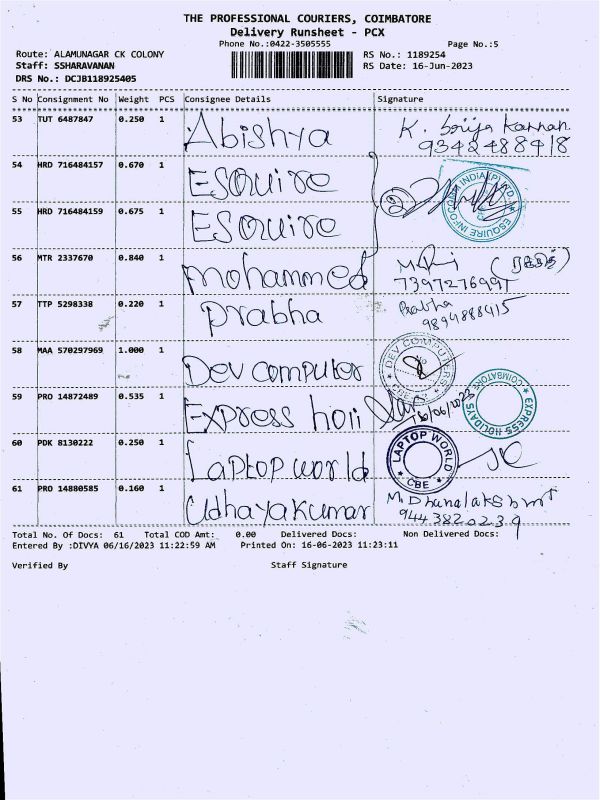 THE PROFESSIONAL COURIERS, COIMBATORE
Delivery Runsheet - PCX
Phone No.:0422-3505555 Page No.:5
Route: ALAMUNAGAR CK COLONY RS No.: 1189254
Staff: SSHARAVANAN RS Date: 16-Jun-2023
DRS No.: DCJB118925405
S No Consignment No Weight PCS Consignee Details Signature
53 TUT 6487847 0.250 1 Abishya K.
9342488418
54 HRD 716484157 0.670 1 ESQUIRE 2
55 HRD 716484159 0.675 1 ESQUIRE
56 MTR 2337670 0.840 1 mohammed
7397276997
57 TTP 5298338 0.220 1 Prabha Prabha
9894888415
58 MAA 570297969 1.000 1 Dev computer DEV COMPUTERS CBE
59 PRO 14872489 0.535 1 Express holi COIMBATORE EXPRESS HOLIDAYS
60 PDK 8130222 0.250 1 Laptop world LAPTOP WORLD CBE
61 PRO 14880585 0.160 1 Udhayakumar M. Dhanalakshmi
9443820239
Total No. Of Docs: 61 Total COD Amt: 0.00 Delivered Docs: Non Delivered Docs:
Entered By :DIVYA 06/16/2023 11:22:59 AM Printed On: 16-06-2023 11:23:11
Verified By Staff Signature